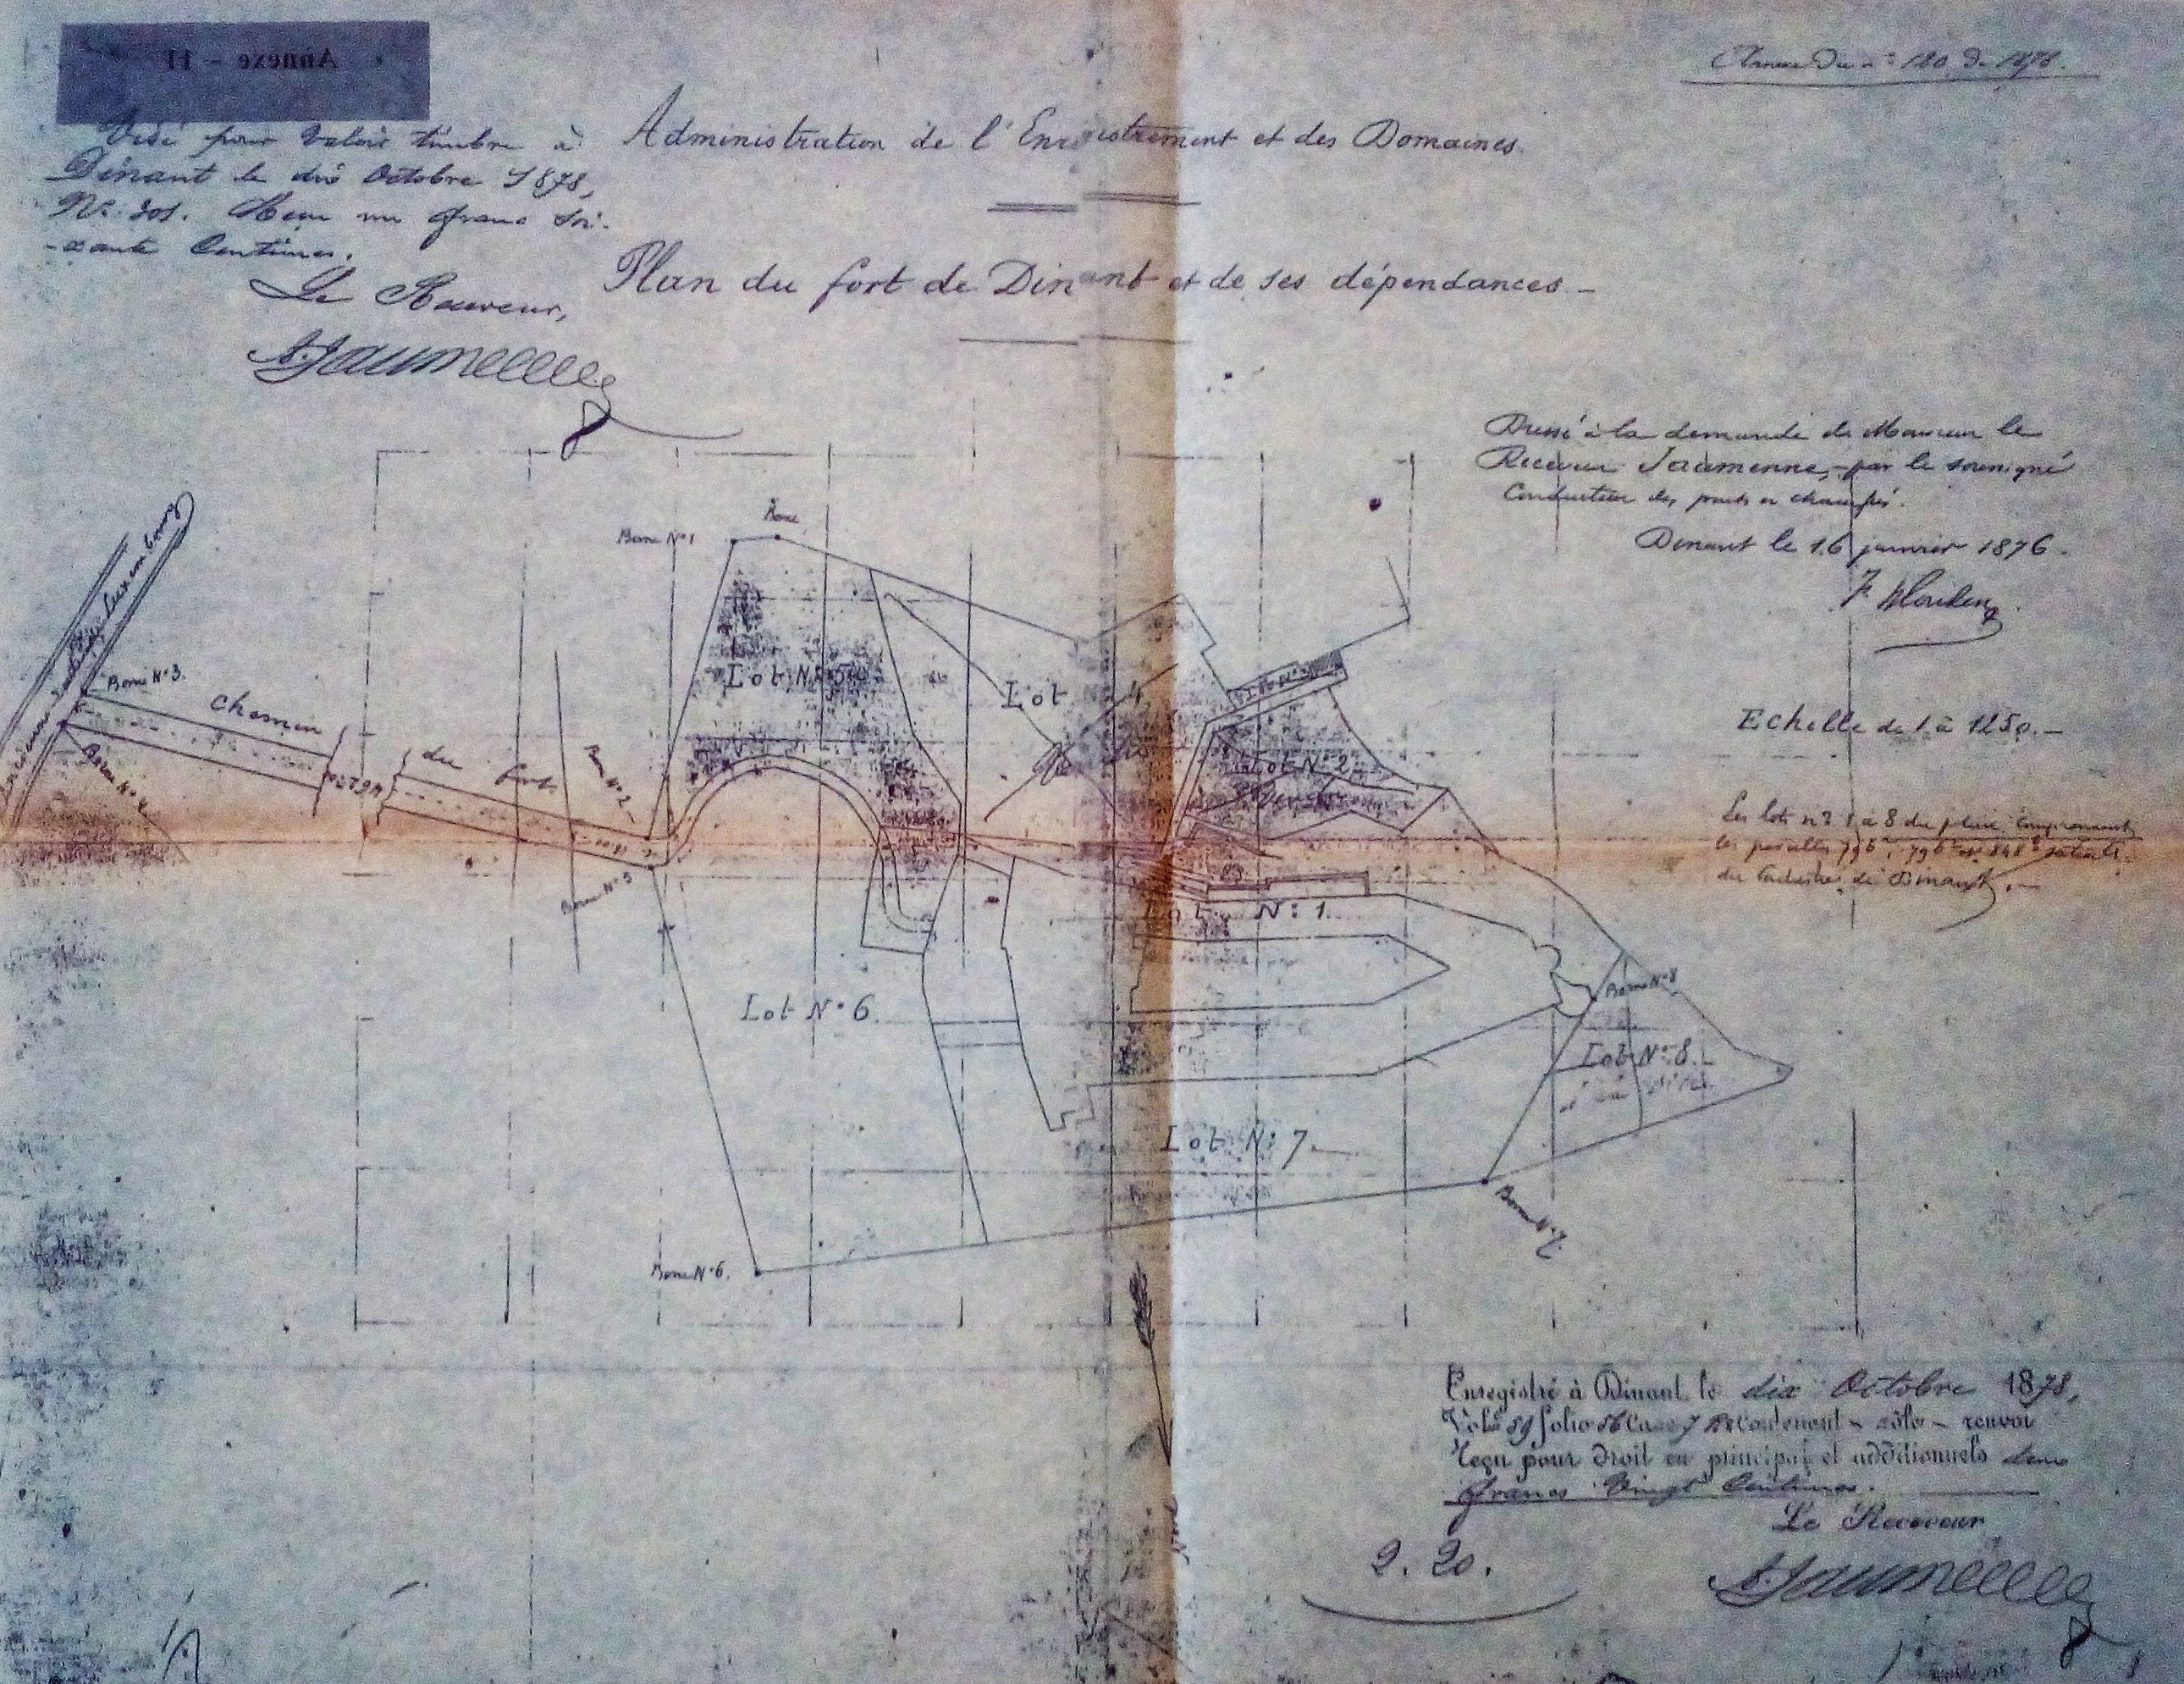 Annexe - 11
Annexe du n° 120 de 1878.
Visé pour valoir timbre à
Dinant le dix Octobre 1878,
N° 301. Reçu un franc soi-
-xante Centimes.
Le Receveur,
Administration de l'Enregistrement et des Domaines.
Plan du fort de Dinant et de ses dépendances.-
Dressé à la demande de Monsieur le
Receveur Jaumenne, par le soussigné
Conducteur des ponts et chaussées.
Dinant le 16 janvier 1876.
Echelle de 1 à 1250.-
Les lots n° 1 à 8 du plan comprennent
les parcelles
du Cadastre de Dinant.-
Borne N°1
Borne
Borne N°3.
Borne N°4
Chemin
du
fort
Borne N°2
Borne N°5
Lot N° 5
Lot
4
Lot N° 3
Lot N° 2
Lot N° 1.
Lot N° 6.
Borne N°8
Lot N° 8.
Lot N° 7.
Borne N°7.
Borne N°6.
Enregistré à Dinant le dix Octobre 1878,
Vol. 89 folio 86 Case 7 contenant - rôle - renvoi
Reçu pour droit en principal et additionnels deux
francs vingt Centimes.
Le Receveur
2. 20.